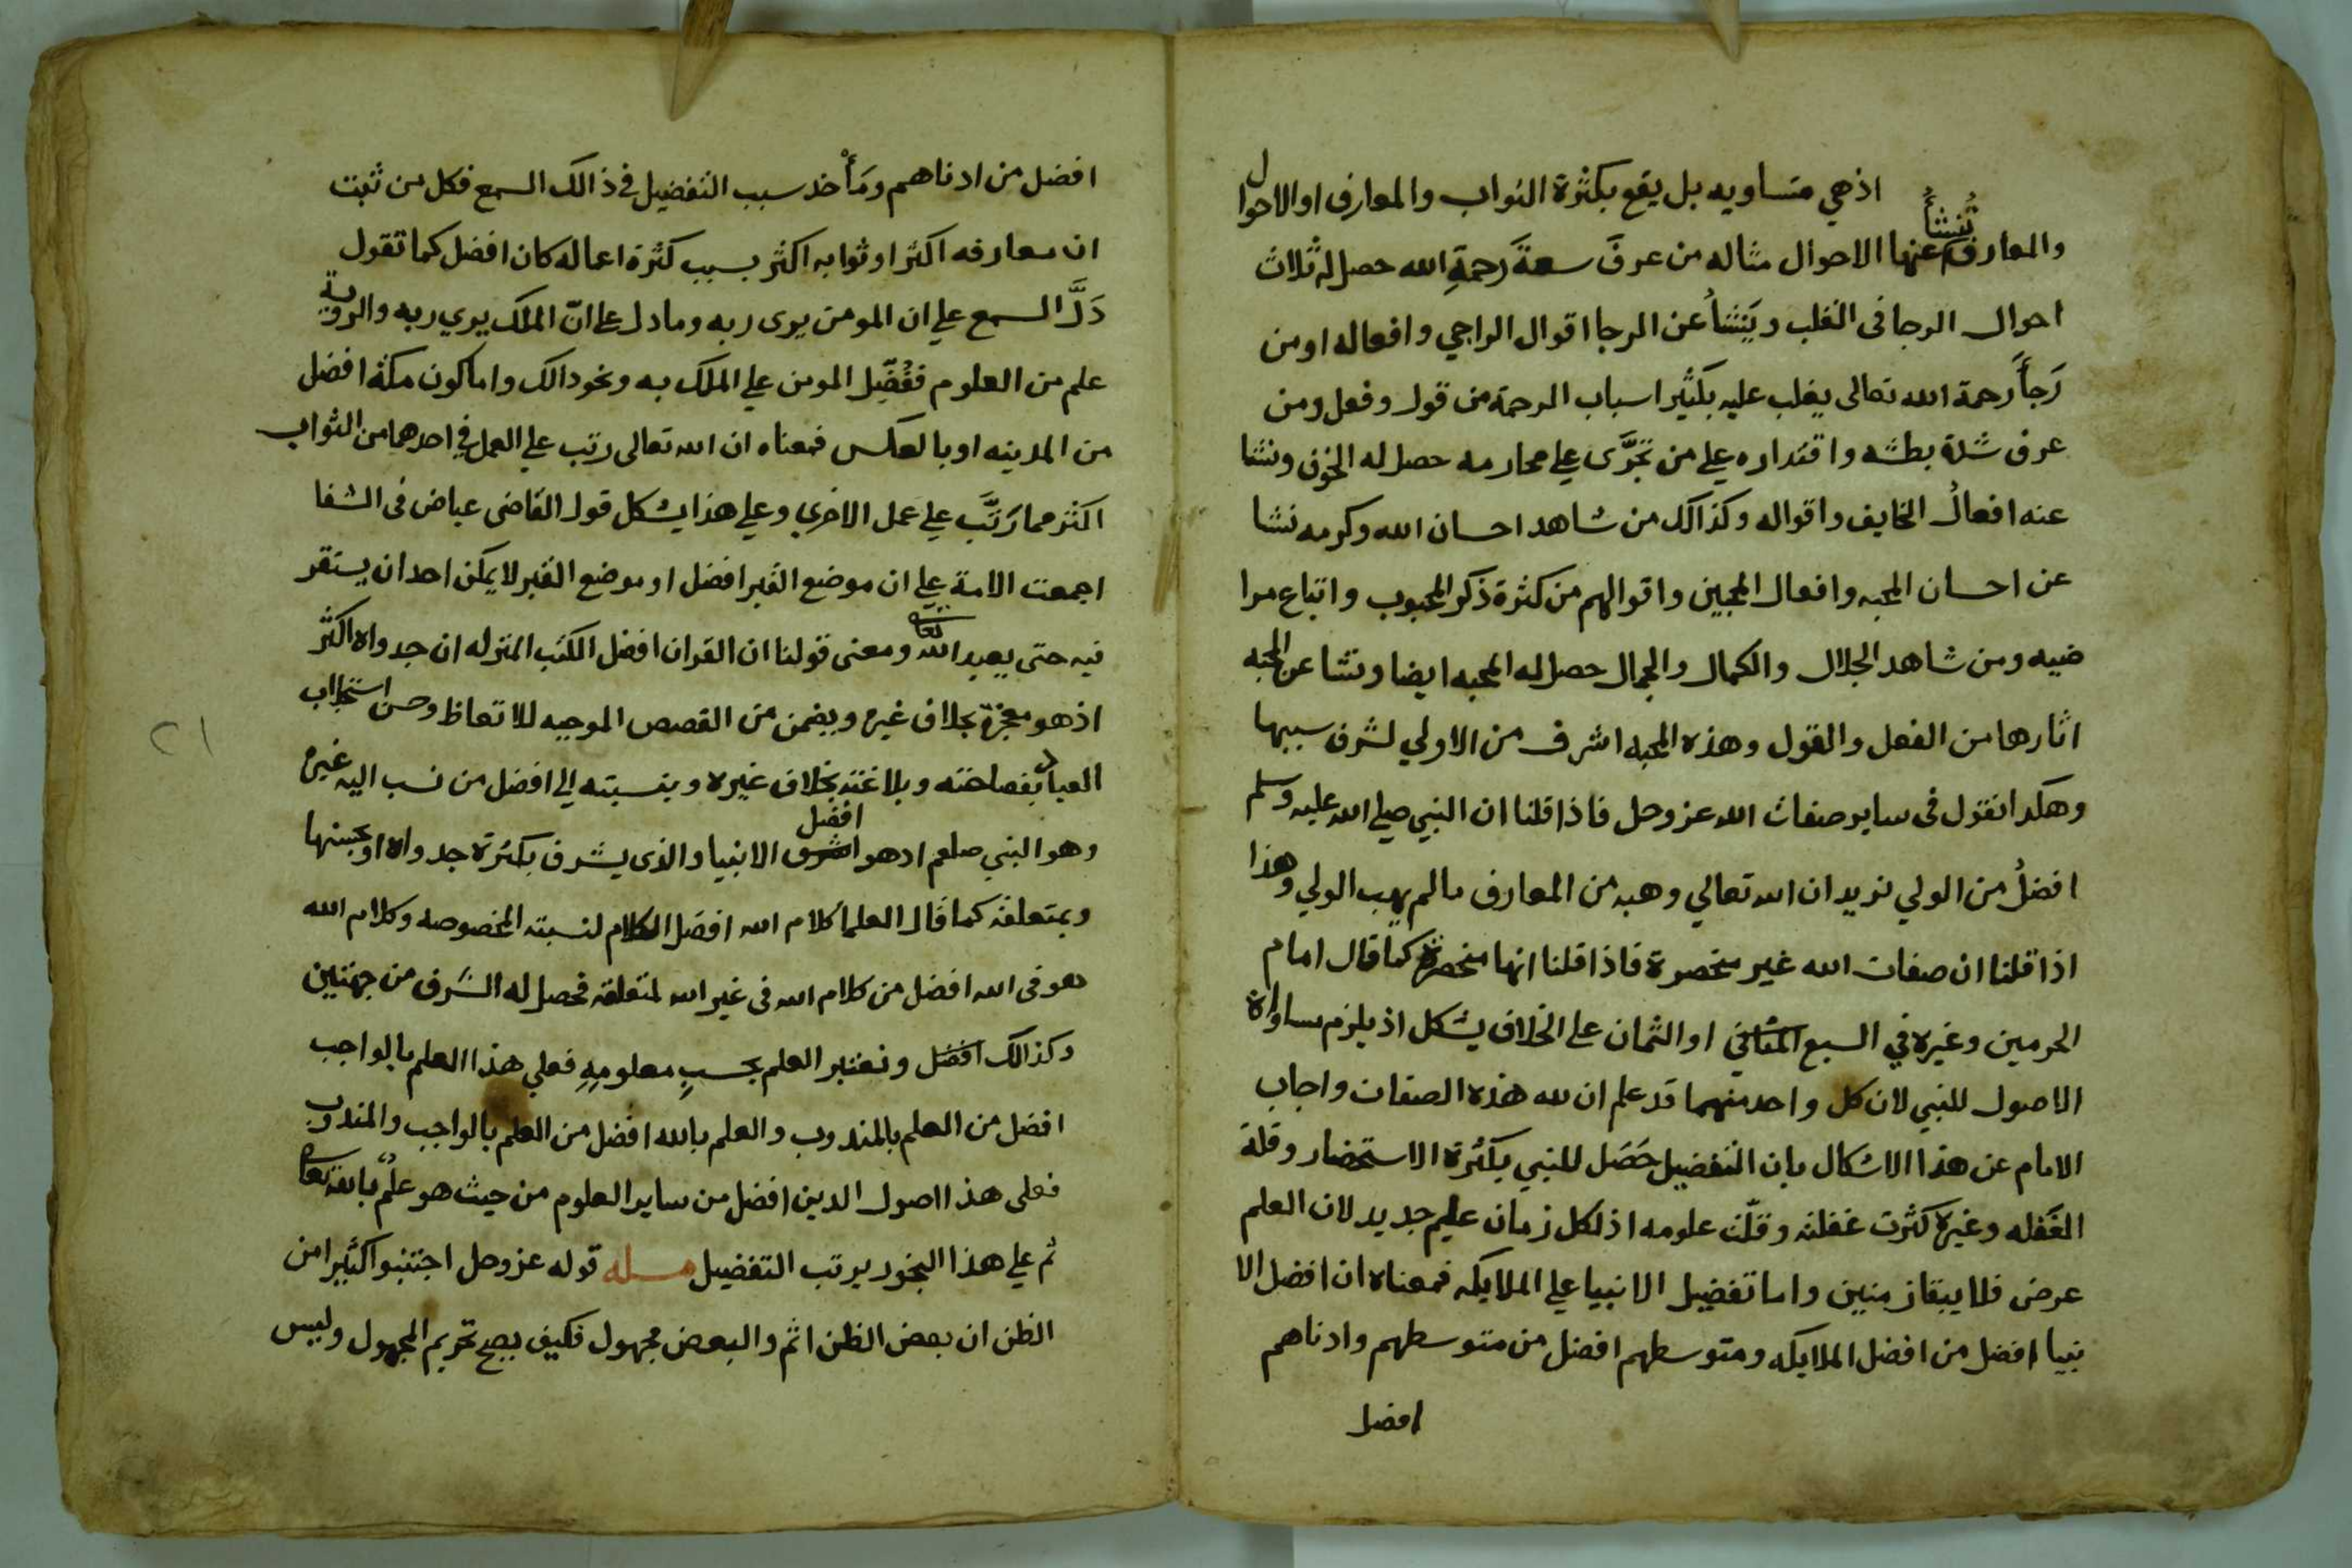 اذ هي متساويه بل يقع بكثرة الثواب والمعارف او الاحوال
والمعارف تُنشأُ عنها الاحوال مثاله من عرفَ سعةَ رحمةِ الله حصل له ثلاث
احوال الرجا فى القلب ويَنشأُ عن الرجا اقوال الراجي وافعاله او من
رَجأَ رحمة الله تعالى يغلب عليه بكثير اسباب الرحمة من قول وفعل ومن
عرف شدة بطشه واقتداره علي من تجرَّى علي محارمه حصل له الخوف ونشا
عنه افعالُ الخايف واقواله وكذالك من شاهد احسان الله وكرمه نشا
عن احسان المحبه وافعال المحبين واقوالهم من كثرة ذكر المحبوب واتباع مرا
ضيه ومن شاهد الجلال والكمال والجمال حصل له المحبه ايضا ونشا عن المحبه
اثارها من الفعل والقول وهذه المحبه اشرف من الاولي لشرف سببها
وهكدا نقول فى ساير صفات الله عز وجل فاذا قلنا ان النبي صلي الله عليه وسلم
افضلُ من الولي نريد ان الله تعالي وهبه من المعارف ما لم يهب الولي وهذا
اذا قلنا ان صفات الله غير منحصرة فاذا قلنا انها منحصرة كما قال امام
الحرمين وغيره في السبع المثاني او الثمان علي الخلاف يشكل اذ يلزم مساواة
الاصول للنبي لان كل واحد منهما قد علم ان لله هذه الصفات واجاب
الامام عن هذا الاشكال بان التفضيل حَصَل للنبي بكثرة الاستحضار وقلة
الغَفله وغيره كثرت غفلته وقلّت علومه اذ لكل زمان علم جديد لان العلم
عرض فلا يبقا زمنين واما تفضيل الانبيا علي الملايكه فمعناه ان افضل الا
نبيا افضل من افضل الملايكه ومتوسطهم افضل من متوسطهم وادناهم
افضل
افضل من ادناهم ومَأْخد سبب التفضيل في ذالك السمع فكل من ثبت
ان معارفه اكثر او ثوابه اكثر بسبب كثرة اعماله كان افضل كما تقول
دَلَّ السمع علي ان المومن يرى ربه وما دل علي انّ الملك يري ربه والروية
علم من العلوم فَفُضِّل المومن علي الملك به ونحو دالك واما كون مكة افضل
من المدينه او بالعكس فمعناه ان الله تعالى رتب علي العمل في احدهما من الثواب
اكثر مما رَتَّبَ علي عمل الاخري وعلي هذا يشكل قول القاضى عياض فى الشفا
اجمعت الامة علي ان موضع القبر افضل او موضع القبر لا يمكن احد ان يستقر
فيه حتى يعبد الله تعالى ومعنى قولنا ان القران افضل الكتب المنزله ان جدواه اكثر
اذ هو معجزة بخلاف غيره ويضمن من القصص الموجبه للاتعاظ وحسن استجلاب
العباد بفصاحته وبلاغته بخلاف غيره وبنسبته الي افضل من نسب اليه غيره
وهو النبي صلعم ادهو اشرف افضل الانبيا والذى يشرف بكثرة جدواه او بحسنها
وبمتعلقه كما قال العلما كلام الله افضل الكلام لنسبته المخصوصه وكلام الله
هو فى الله افضل من كلام الله فى غير الله لمتعلقه فحصل له الشرف من جهتين
وكذالك افضل ونعتبر العلم بحسبِ معلومِهِ فعلي هذا العلم بالواجب
افضل من العلم بالمندوب والعلم بالله افضل من العلم بالواجب والمندوب
فعلى هذا اصول الدين افضل من ساير العلوم من حيث هو علمٌ بالله تعالى
ثم علي هذا النحو يرتب التفضيل مسله قوله عز وجل اجتنبوا كثيرا من
الظن ان بعض الظن اثم والبعض مجهول فكيف يصح تحريم المجهول وليس
٢١